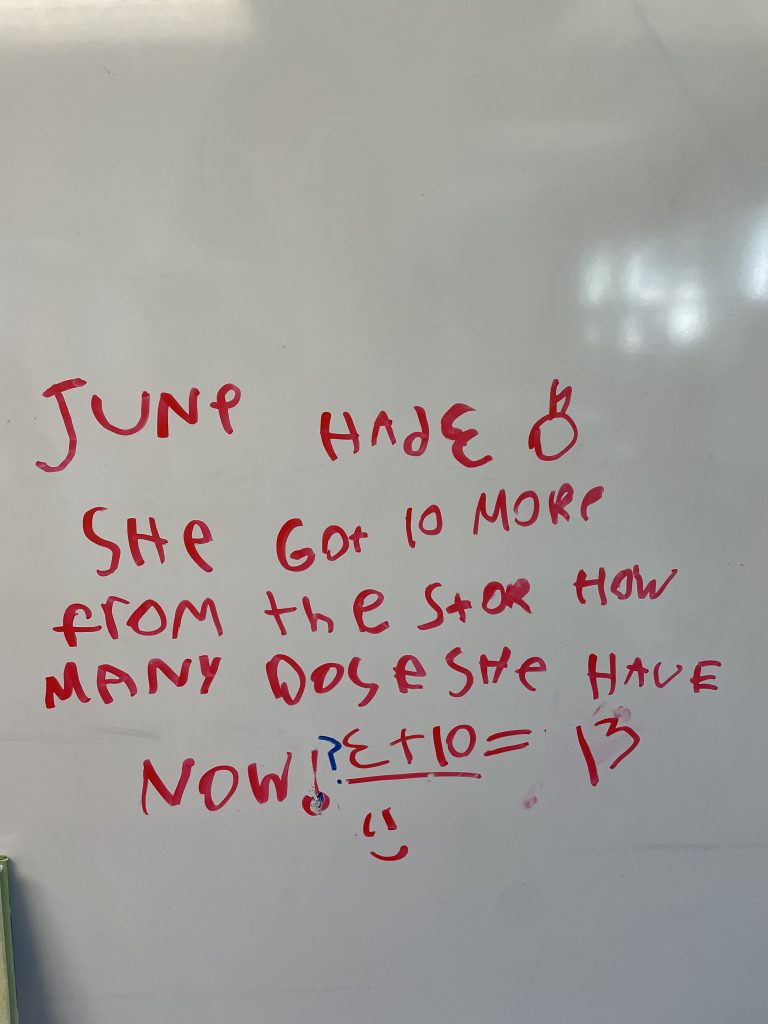 JUNe HAd 3
SHe GOt 10 MORe
frOM the StOR HOW
MANY DOSe SHe HAVE
NOW!? 3+10= 13